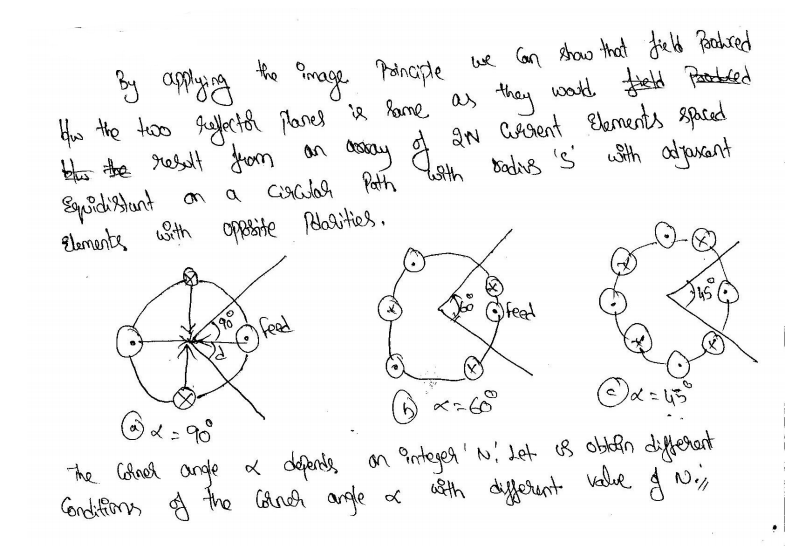 By applying the image Principle we can show that field Produced
b/w the two reflector planes is same as they would field Produced
b/w the result from an array of 2N current Elements spaced
Equidistant on a circular Path with radius 'S' with adjascent
Elements with opposite Polarities.
90°
d
feed
(a) α = 90°
60°
feed
(b) α = 60°
45°
(c) α = 45°
The Corner angle α depends on integer 'N'. Let us obtain different
Conditions of the Corner angle α with different value of N.